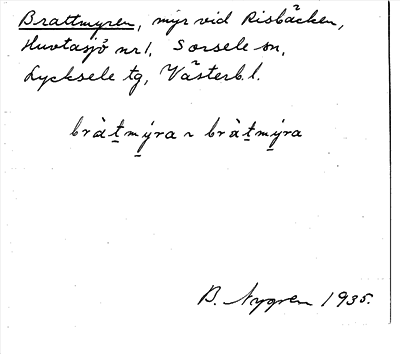 Brattmyren, myr vid Risbäcken,
Huvtasjö nr 1, Sorsele sn,
Lycksele tg, Västerb. l.
bràt̲mýra ~ bràt̲mýra
B. Nygren 1935.